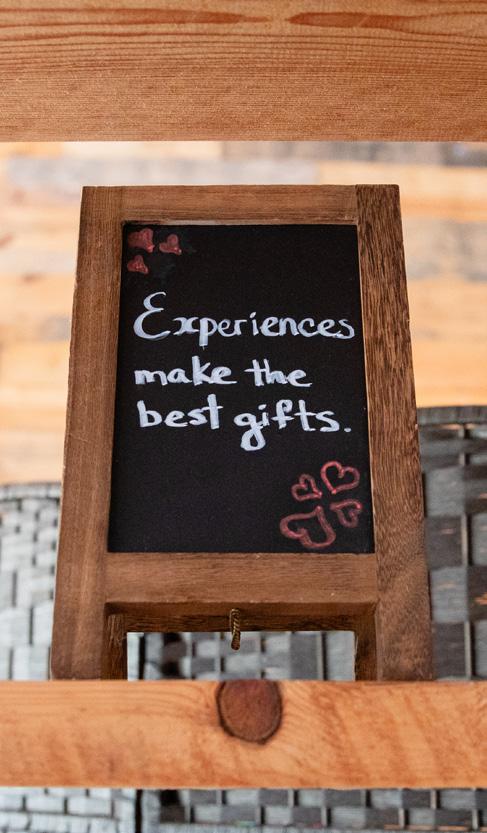 Experiences
make the
best gifts.